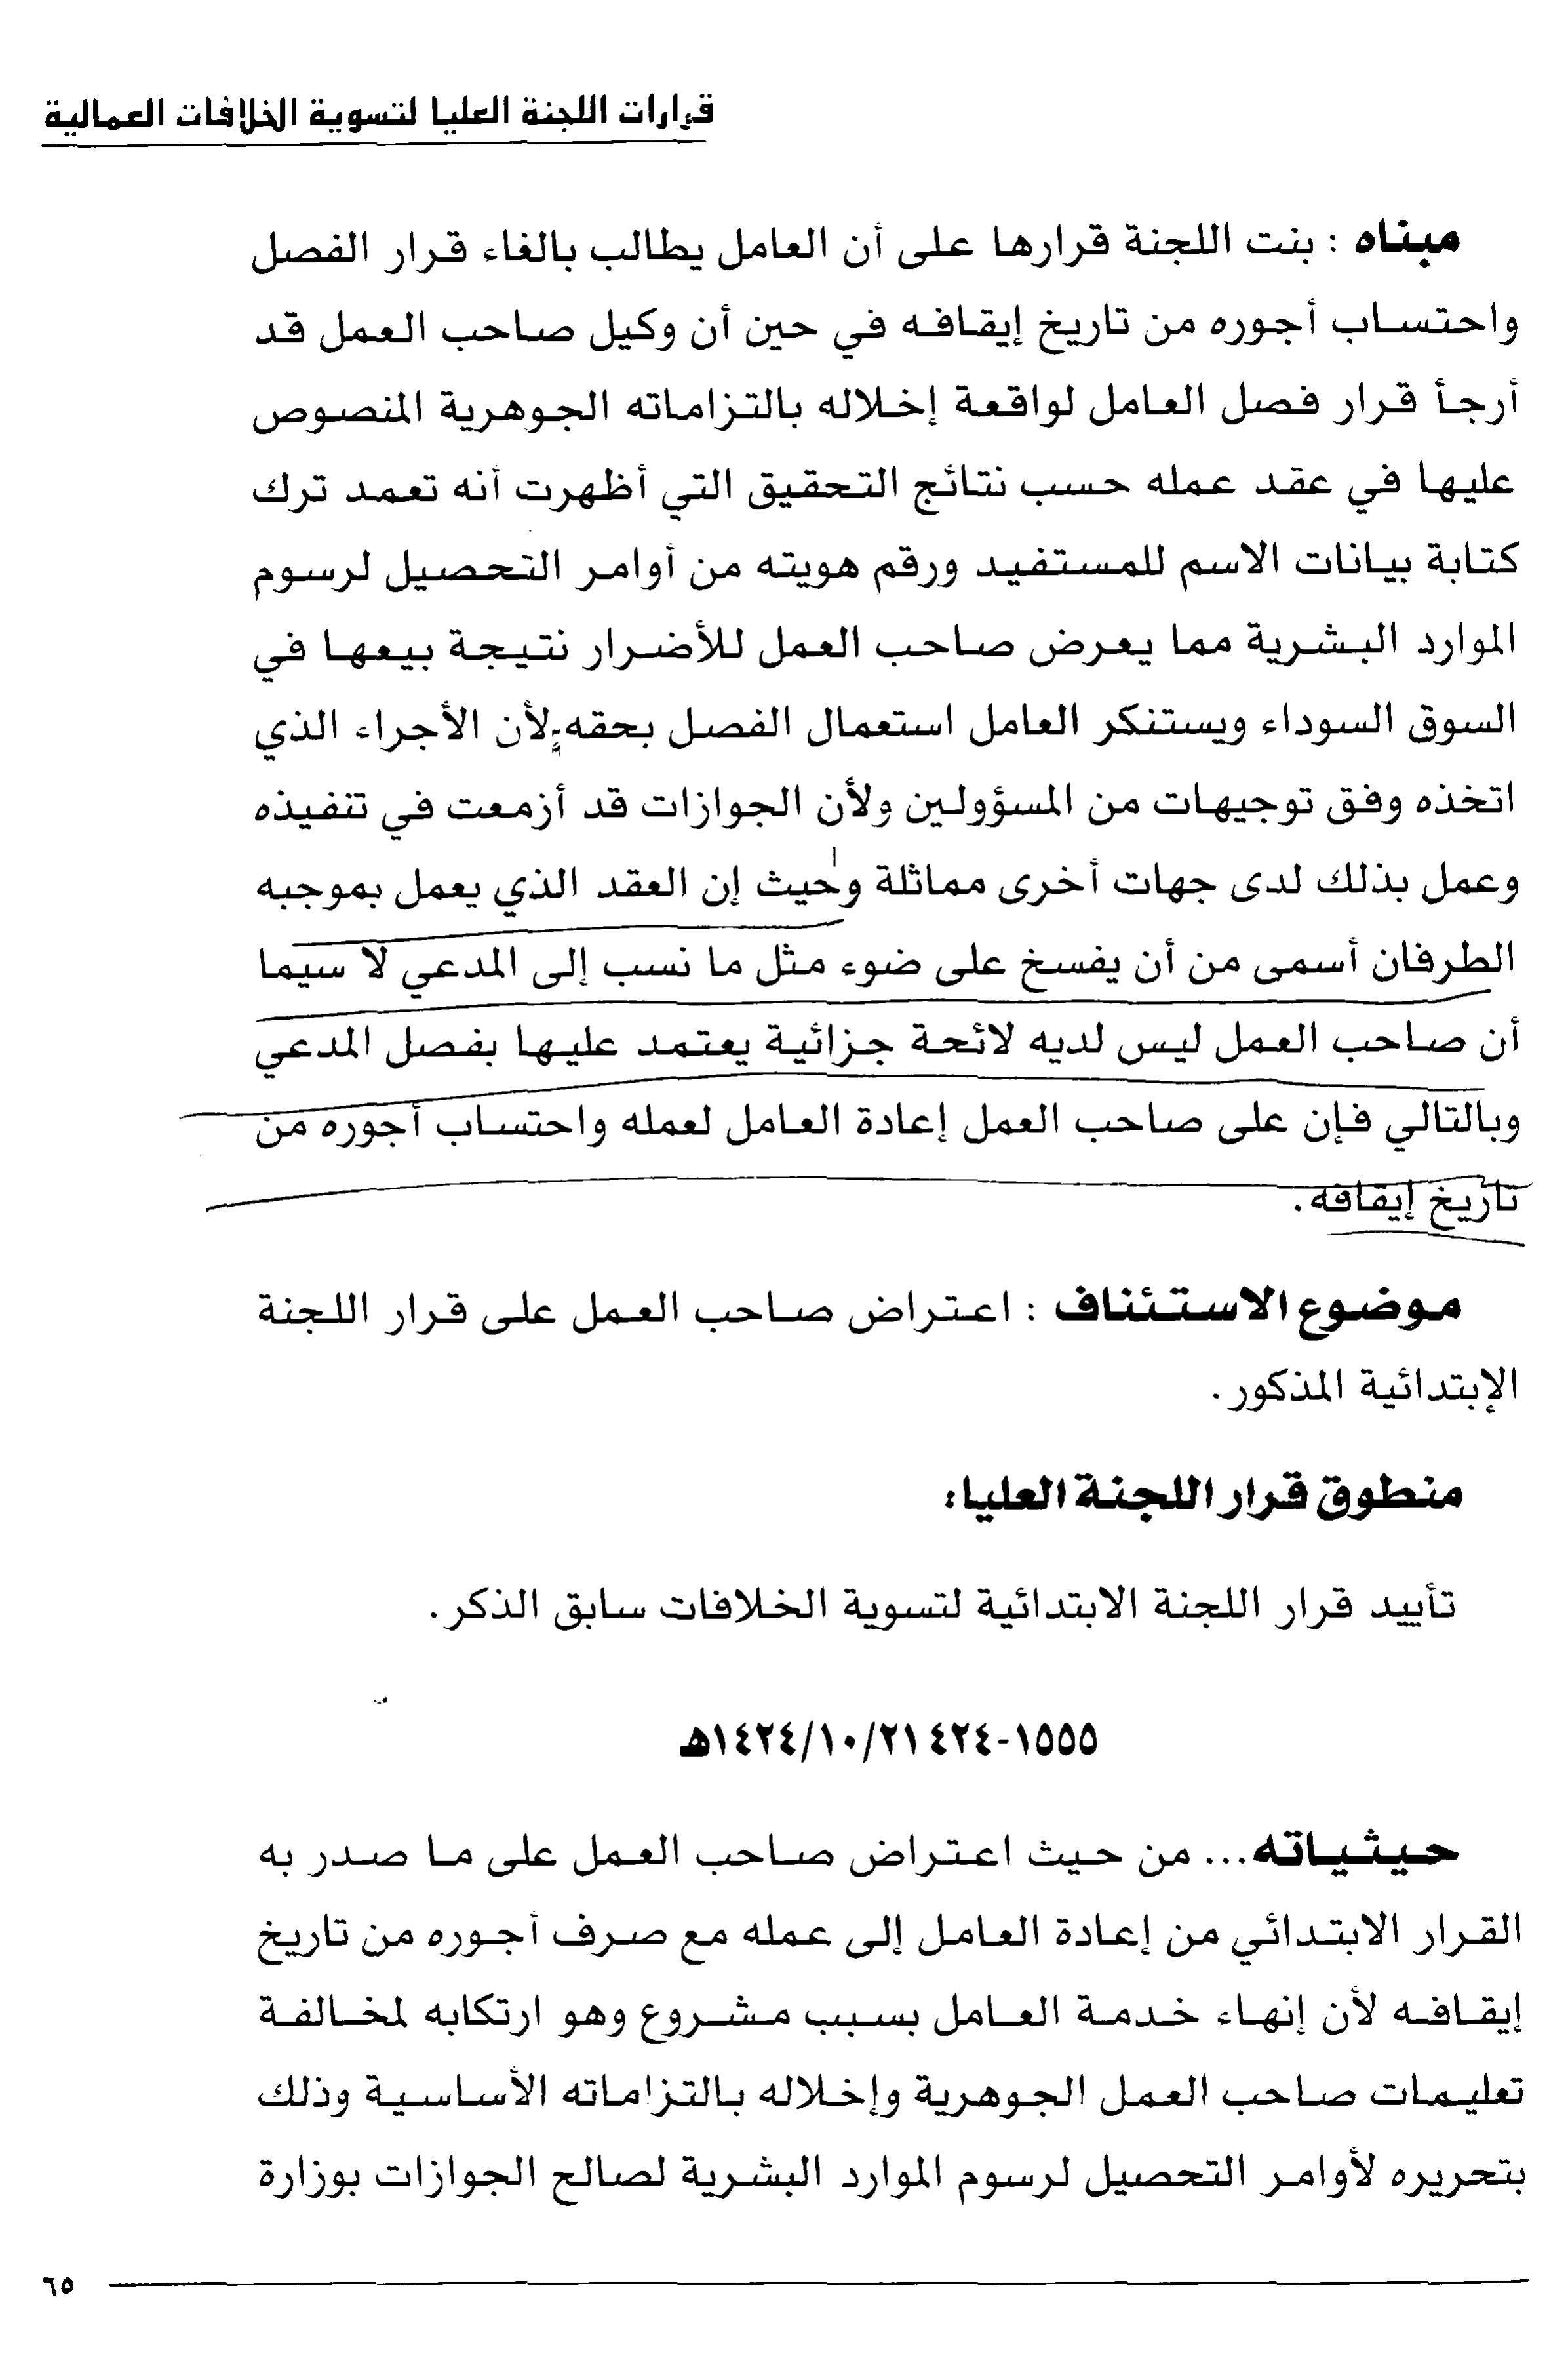 قرارات اللجنة العليا لتسوية الخلافات العمالية
مبناه : بنت اللجنة قرارها على أن العامل يطالب بالغاء قرار الفصل
واحتساب أجوره من تاريخ إيقافه في حين أن وكيل صاحب العمل قد
أرجأ قرار فصل العامل لواقعة إخلاله بالتزاماته الجوهرية المنصوص
عليها في عقد عمله حسب نتائج التحقيق التي أظهرت أنه تعمد ترك
كتابة بيانات الاسم للمستفيد ورقم هويته من أوامر التحصيل لرسوم
الموارد البشرية مما يعرض صاحب العمل للأضرار نتيجة بيعها في
السوق السوداء ويستنكر العامل استعمال الفصل بحقه لأن الأجراء الذي
اتخذه وفق توجيهات من المسؤولين ولأن الجوازات قد أزمعت في تنفيذه
وعمل بذلك لدى جهات أخرى مماثلة وحيث إن العقد الذي يعمل بموجبه
الطرفان أسمى من أن يفسخ على ضوء مثل ما نسب إلى المدعي لا سيما
أن صاحب العمل ليس لديه لائحة جزائية يعتمد عليها بفصل المدعي
وبالتالي فإن على صاحب العمل إعادة العامل لعمله واحتساب أجوره من
تاريخ إيقافه.
موضوع الاستئناف : اعتراض صاحب العمل على قرار اللجنة
الإبتدائية المذكور.
منطوق قرار اللجنة العليا:
تأييد قرار اللجنة الابتدائية لتسوية الخلافات سابق الذكر.
١٥٥٥-٤٢٤ ١٤٢٤/١٠/٢١هـ
حيثياته... من حيث اعتراض صاحب العمل على ما صدر به
القرار الابتدائي من إعادة العامل إلى عمله مع صرف أجوره من تاريخ
إيقافه لأن إنهاء خدمة العامل بسبب مشروع وهو ارتكابه لمخالفة
تعليمات صاحب العمل الجوهرية وإخلاله بالتزاماته الأساسية وذلك
بتحريره لأوامر التحصيل لرسوم الموارد البشرية لصالح الجوازات بوزارة
٦٥